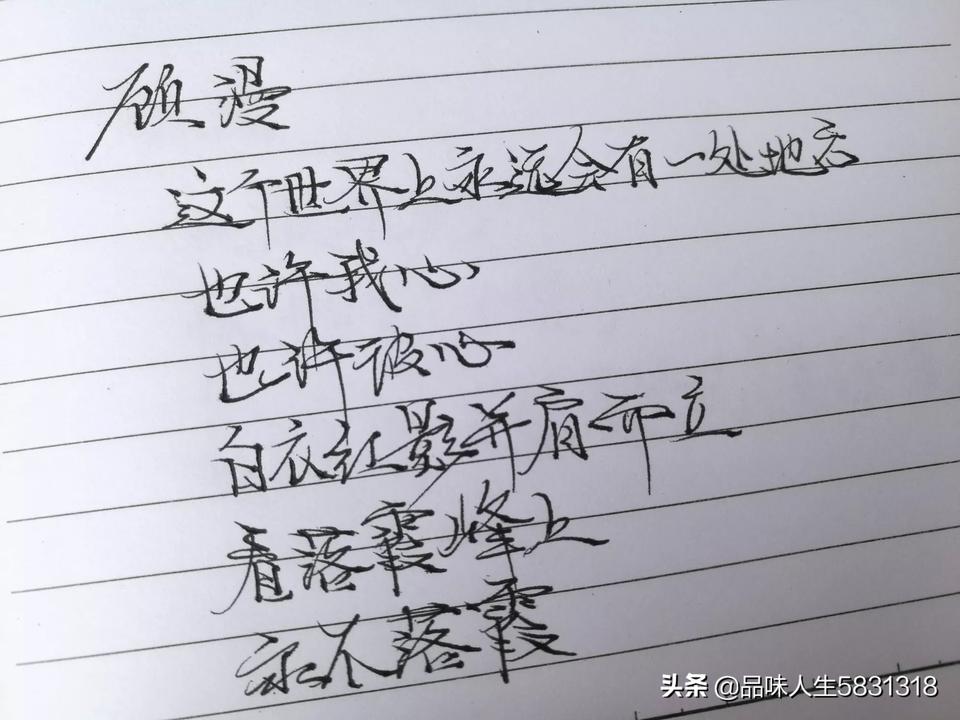 顾漫
这个世界上永远会有一处地方
也许我心
也许彼心
白衣红影并肩而立
看落霞峰上
永不落霞
头条 @品味人生5831318